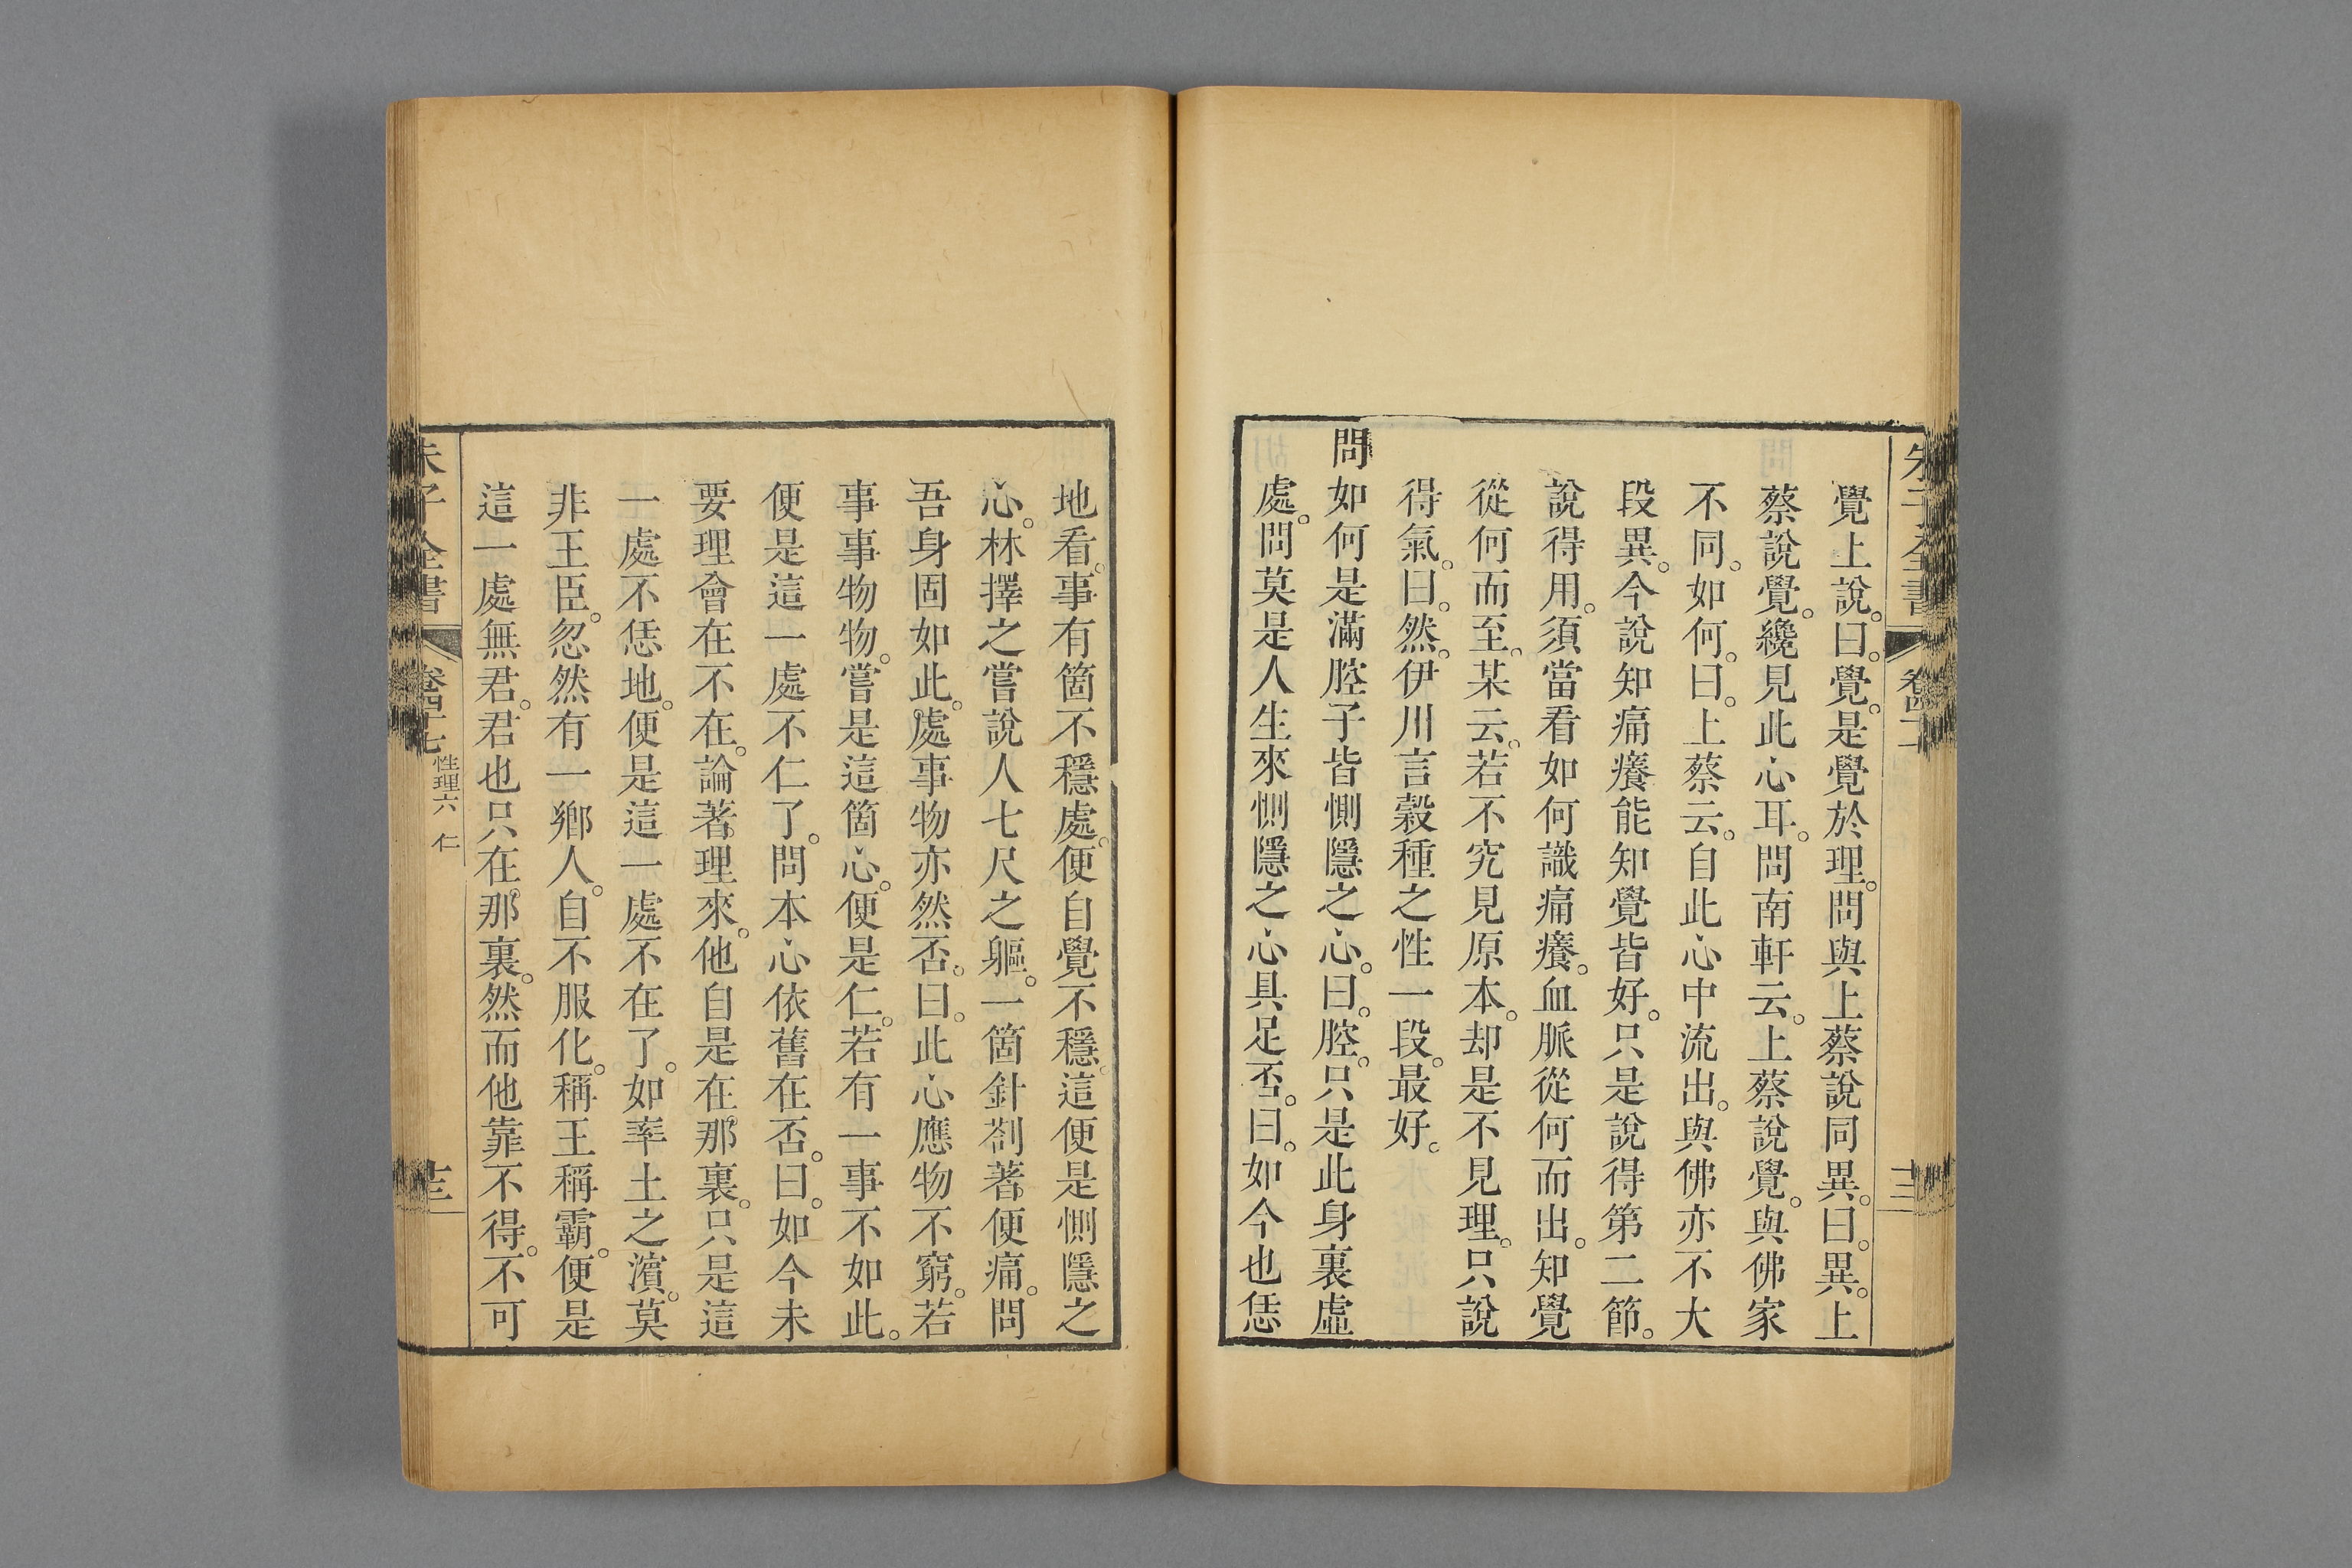 覺上說。曰。覺。是覺於理。問與上蔡說同異。曰。異。上
蔡說覺。纔見此心耳。問南軒云。上蔡說覺。與佛家
不同。如何。曰。上蔡云。自此心中流出。與佛亦不大
段異。今說知痛癢能知覺皆好。只是說得第二節。
說得用。須當看如何識痛癢。血脈從何而出。知覺
從何而至。某云。若不究見原本。却是不見理。只說
得氣。曰。然。伊川言穀種之性一段。最好。
問如何是滿腔子皆惻隱之心。曰。腔。只是此身裏虛
處。問莫是人生來惻隱之心具足否。曰。如今也恁
地看。事有箇不穩處。便自覺不穩。這便是惻隱之
心。林擇之嘗說人七尺之軀。一箇針劄著。便痛。問
吾身固如此。處事物亦然否。曰。此心應物不窮。若
事事物物。嘗是這箇心。便是仁。若有一事不如此。
便是這一處不仁了。問本心依舊在否。曰。如今未
要理會在不在。論著。理來。他自是在那裏。只是這
一處不恁地。便是這一處不在了。如率土之濱。莫
非王臣。忽然有一鄉人。自不服化。稱王稱霸。便是
這一處無君。君也只在那裏。然而他靠不得。不可
朱子全書
卷四十七
性理六 仁
十三